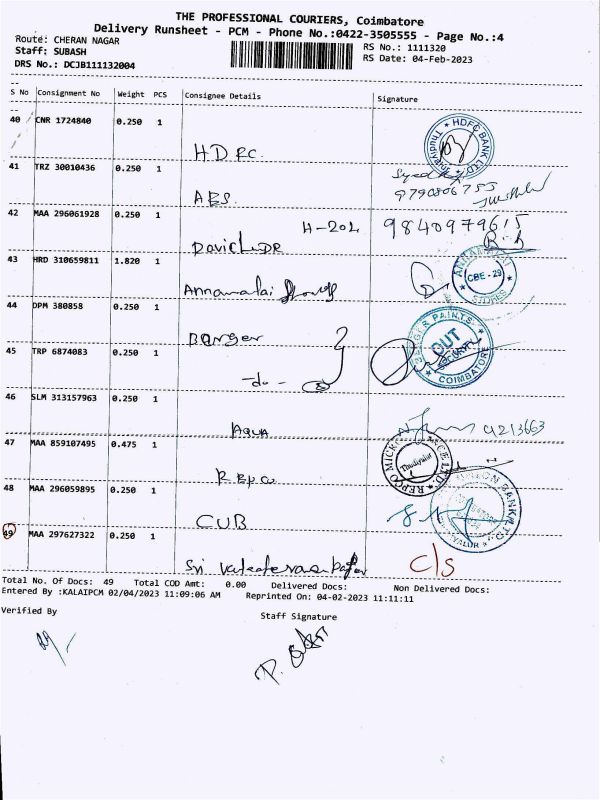 THE PROFESSIONAL COURIERS, Coimbatore
Delivery Runsheet - PCM - Phone No.:0422-3505555 - Page No.:4
Route: CHERAN NAGAR
RS No.: 1111320
Staff: SUBASH
RS Date: 04-Feb-2023
DRS No.: DCJB111132004
S No Consignment No Weight PCS Consignee Details Signature
40 CNR 1724840 0.250 1
HDFC HDFC BANK LTD
41 TRZ 30010436 0.250 1
Syed
9790806753
42 MAA 296061928 0.250 1
H-204 9840979615
David DR
43 HRD 310659811 1.820 1
Annamalai ANNAMALAI STORES CBE - 29
44 DPM 380858 0.250 1
Barger BERGER PAINTS OUT COIMBATORE
45 TRP 6874083 0.250 1
-do-
46 SLM 313157963 0.250 1
AQUA 4213663
47 MAA 859107495 0.475 1
Repco REPCO MICRO Thudiyalur
48 MAA 296059895 0.250 1
CUB UNION BANK
49 MAA 297627322 0.250 1
Sri C/S
Total No. Of Docs: 49 Total COD Amt: 0.00 Delivered Docs: Non Delivered Docs:
Entered By :KALAIPCM 02/04/2023 11:09:06 AM Reprinted On: 04-02-2023 11:11:11
Verified By Staff Signature